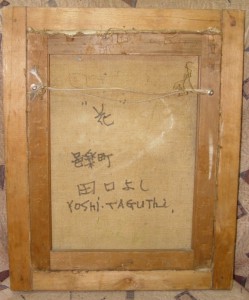 "花"
邑楽町
田口よし
YOSHI.TAGUTHI